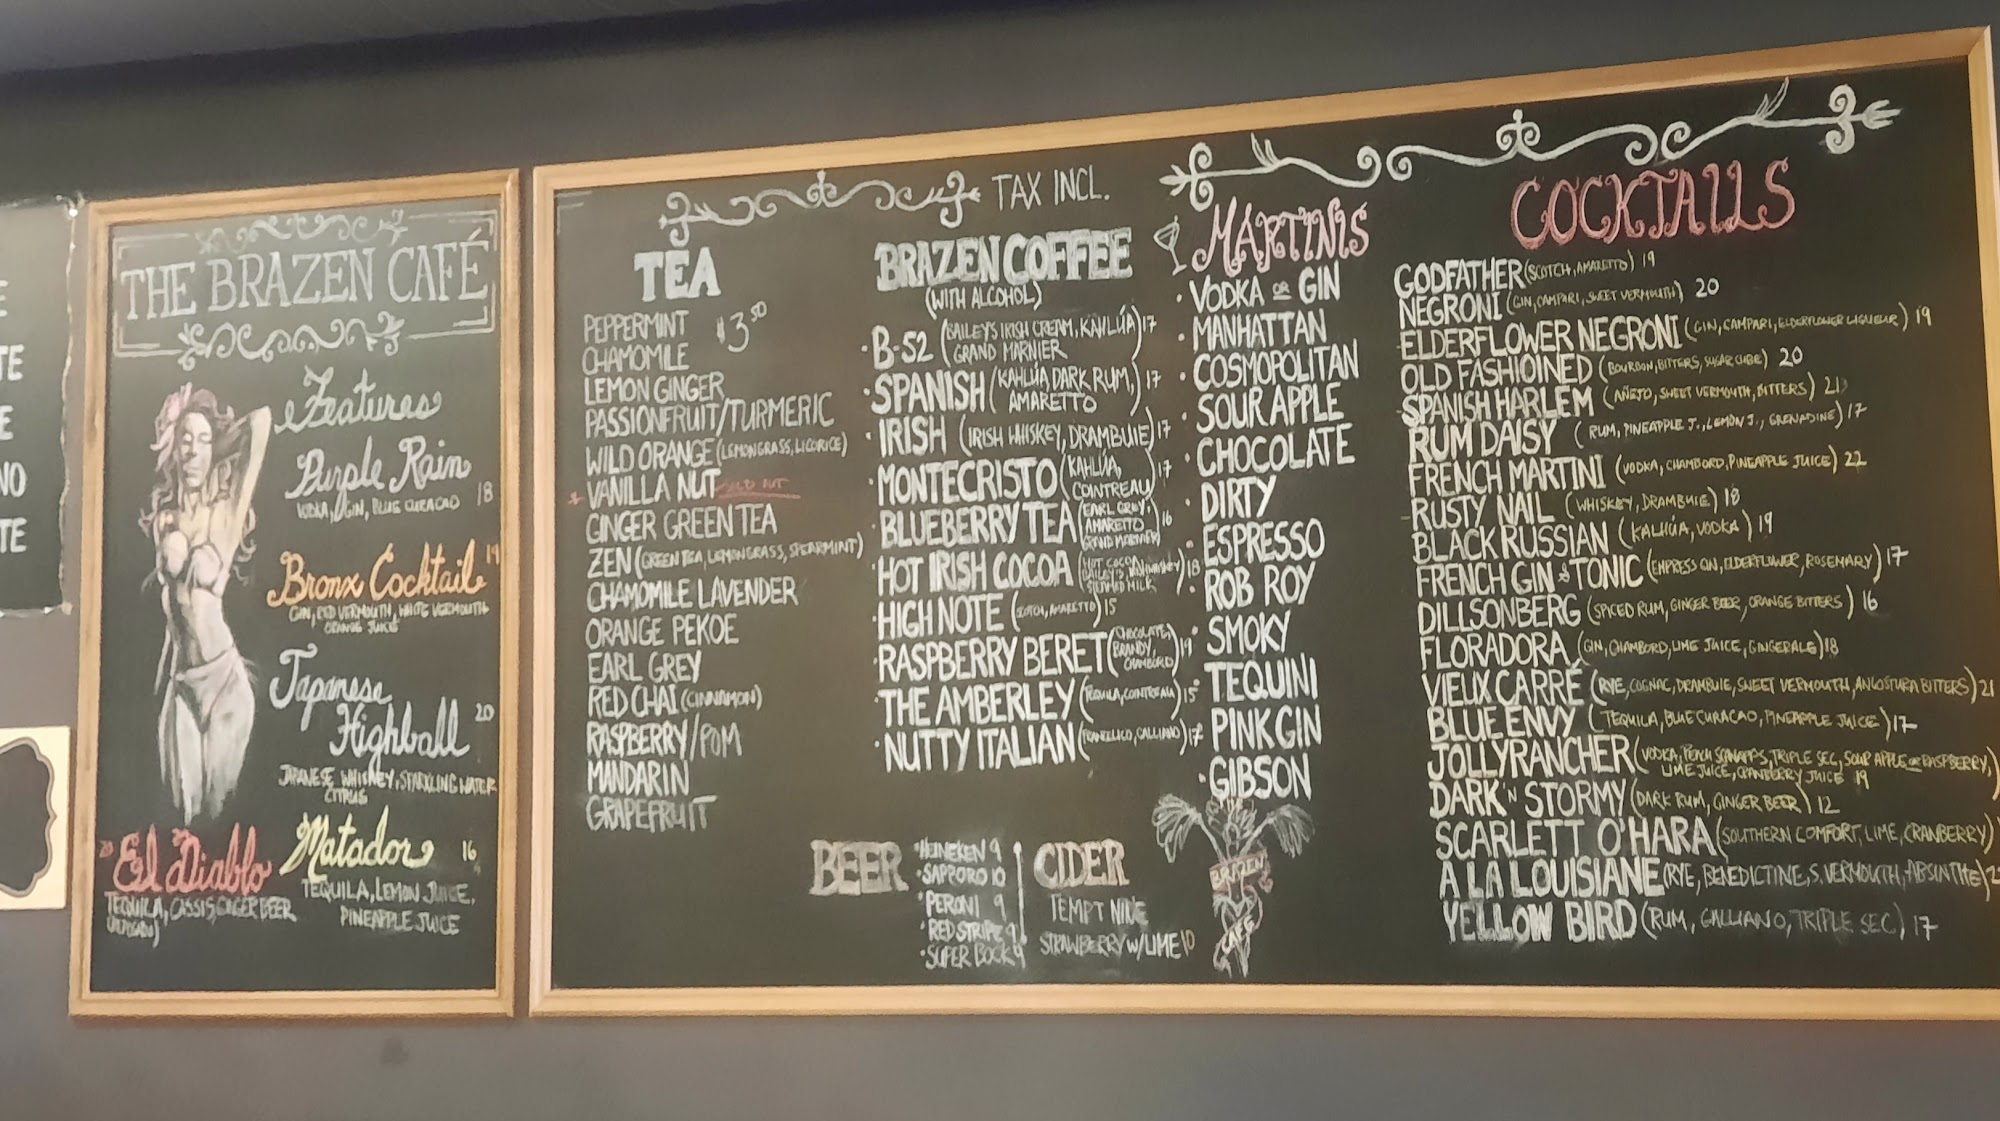 TE
NO
TE
THE BRAZEN CAFÉ
Features
Purple Rain
VODKA, GIN, BLUE CURACAO 18
Bronx Cocktail 19
GIN, RED VERMOUTH, WHITE VERMOUTH
ORANGE JUICE
Japanese
Highball 20
JAPANESE WHISKEY, SPARKLING WATER
CITRUS
El Diablo
TEQUILA, CASSIS, GINGER BEER
Matador 16
TEQUILA, LEMON JUICE,
PINEAPPLE JUICE
TAX INCL.
TEA
$3.50
PEPPERMINT
CHAMOMILE
LEMON GINGER
PASSIONFRUIT/TURMERIC
WILD ORANGE (LEMONGRASS, LICORICE)
VANILLA NUT SOLD OUT
GINGER GREEN TEA
ZEN (GREEN TEA, LEMONGRASS, SPEARMINT)
CHAMOMILE LAVENDER
ORANGE PEKOE
EARL GREY
RED CHAI (CINNAMON)
RASPBERRY/POM
MANDARIN
GRAPEFRUIT
BRAZEN COFFEE
(WITH ALCOHOL)
·B-52 (BAILEY'S IRISH CREAM, KAHLÚA) 17
GRAND MARNIER
·SPANISH (KAHLÚA DARK RUM,) 17
AMARETTO
·IRISH (IRISH WHISKEY, DRAMBUIE) 17
·MONTECRISTO (KAHLÚA, 17
COINTREAU)
·BLUEBERRY TEA (EARL GREY, AMARETTO 16
GRAND MARNIER)
·HOT IRISH COCOA (HOT COCOA 18
STEAMED MILK
·HIGH NOTE (SCOTCH, AMARETTO) 15
·RASPBERRY BERET (CHOCOLATE, BRANDY, CHAMBORD) 19
·THE AMBERLEY (TEQUILA, COINTREAU) 15
·NUTTY ITALIAN (FRANGELICO, GALLIANO) 17
MARTINIS
·VODKA OR GIN
·MANHATTAN
·COSMOPOLITAN
·SOUR APPLE
·CHOCOLATE
·DIRTY
·ESPRESSO
·ROB ROY
·SMOKY
·TEQUINI
·PINK GIN
·GIBSON
BEER
·HEINEKEN 9
·SAPPORO 10
·PERONI 9
·RED STRIPE 9
·SUPER BOCK 9
CIDER
TEMPT NINE
STRAWBERRY W/LIME 10
BRAZEN
CAFÉ
COCKTAILS
GODFATHER (SCOTCH, AMARETTO) 19
NEGRONI (GIN, CAMPARI, SWEET VERMOUTH) 20
ELDERFLOWER NEGRONI (GIN, CAMPARI, ELDERFLOWER LIQUEUR) 19
OLD FASHIONED (BOURBON, BITTERS, SUGAR CUBE) 20
SPANISH HARLEM (AÑEJO, SWEET VERMOUTH, BITTERS) 21
RUM DAISY (RUM, PINEAPPLE J., LEMON J., GRENADINE) 17
FRENCH MARTINI (VODKA, CHAMBORD, PINEAPPLE JUICE) 22
RUSTY NAIL (WHISKEY, DRAMBUIE) 18
BLACK RUSSIAN (KALHÚA, VODKA) 19
FRENCH GIN & TONIC (EMPRESS GIN, ELDERFLOWER, ROSEMARY) 17
DILLSONBERG (SPICED RUM, GINGER BEER, ORANGE BITTERS) 16
FLORADORA (GIN, CHAMBORD, LIME JUICE, GINGERALE) 18
VIEUX CARRÉ (RYE, COGNAC, DRAMBUIE, SWEET VERMOUTH, ANGOSTURA BITTERS) 21
BLUE ENVY (TEQUILA, BLUE CURACAO, PINEAPPLE JUICE) 17
JOLLYRANCHER (VODKA, PEACH SCHNAPPS, TRIPLE SEC, SOUR APPLE OR RASPBERRY,
LIME JUICE, CRANBERRY JUICE 19
DARK 'N STORMY (DARK RUM, GINGER BEER) 12
SCARLETT O'HARA (SOUTHERN COMFORT, LIME, CRANBERRY)
A LA LOUISIANE (RYE, BENEDICTINE, S. VERMOUTH, ABSINTHE)
YELLOW BIRD (RUM, GALLIANO, TRIPLE SEC) 17